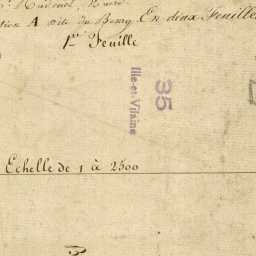 tion A dite du Bourg En deux Feuilles
1re Feuille
Ille-et-Vilaine
35
Echelle de 1 à 2500